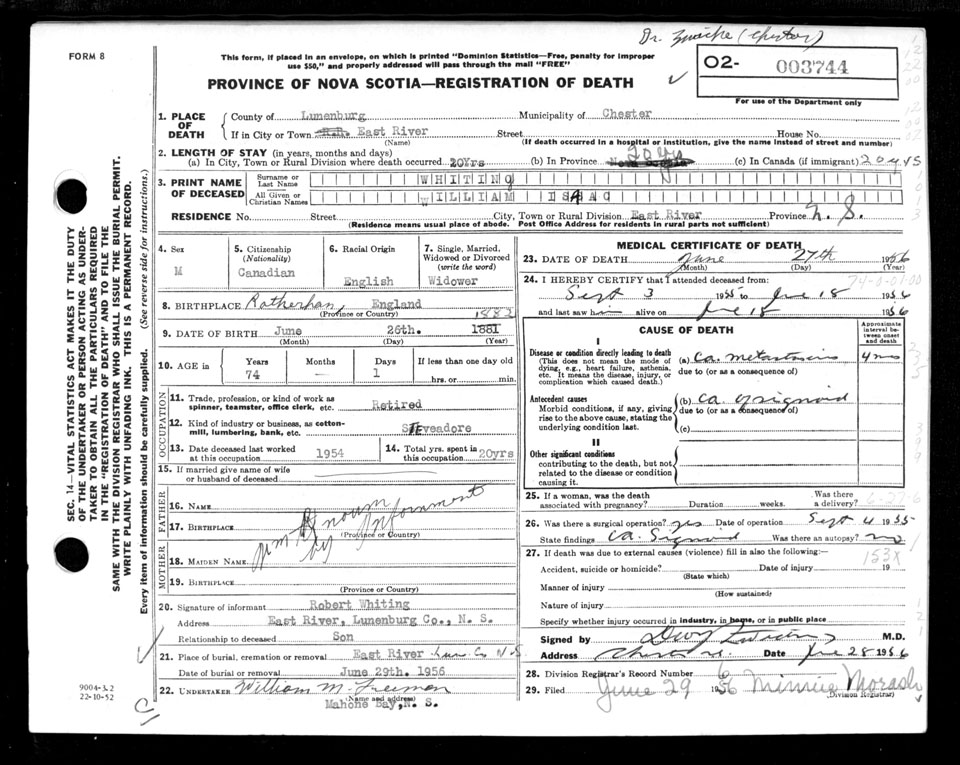 Dr. Zwicke (Chester)
FORM 8
This form, if placed in an envelope, on which is printed "Dominion Statistics—Free, penalty for improper
use $50," and properly addressed will pass through the mail "FREE"
PROVINCE OF NOVA SCOTIA—REGISTRATION OF DEATH
O2- 003744
For use of the Department only
1. PLACE OF DEATH
County of Lunenburg Municipality of Chester
If in City or Town R.R. East River Street House No.
(Name) (If death occurred in a hospital or institution, give the name instead of street and number)
2. LENGTH OF STAY (in years, months and days)
(a) In City, Town or Rural Division where death occurred 20Yrs (b) In Province Nova Scotia 20 yrs (c) In Canada (if immigrant) 20 yrs
3. PRINT NAME OF DECEASED
Surname or Last Name WHITING
All Given or Christian Names WILLIAM ISAAC
RESIDENCE No. Street City, Town or Rural Division East River Province N. S.
(Residence means usual place of abode. Post Office Address for residents in rural parts not sufficient)
4. Sex M
5. Citizenship (Nationality) Canadian
6. Racial Origin English
7. Single, Married, Widowed or Divorced (write the word) Widower
8. BIRTHPLACE Rotherham, England
(Province or Country)
1882
9. DATE OF BIRTH June 26th. 1881
(Month) (Day) (Year)
10. AGE in Years 74 Months — Days 1 If less than one day old hrs. or min.
OCCUPATION
11. Trade, profession, or kind of work as spinner, teamster, office clerk, etc. Retired
12. Kind of industry or business, as cotton-mill, lumbering, bank, etc. STEveadore
13. Date deceased last worked at this occupation 1954
14. Total yrs. spent in this occupation 20yrs
15. If married give name of wife or husband of deceased
FATHER
16. NAME
17. BIRTHPLACE
(Province or Country)
unknown by Informant
MOTHER
18. MAIDEN NAME
19. BIRTHPLACE
(Province or Country)
20. Signature of informant Robert Whiting
Address East River, Lunenburg Co., N. S.
Relationship to deceased Son
21. Place of burial, cremation or removal East River Lun. Co N.S.
Date of burial or removal June 29th. 1956
22. UNDERTAKER William M. Freeman
(Name and address)
Mahone Bay, N. S.
MEDICAL CERTIFICATE OF DEATH
23. DATE OF DEATH June 27th 1956
(Month) (Day) (Year)
24. I HEREBY CERTIFY that I attended deceased from:
Sept 3 1955 to June 18 1956
and last saw him alive on June 18 1956
CAUSE OF DEATH
Approximate interval between onset and death
I
Disease or condition directly leading to death (a) Ca. metastasis 4 mos
(This does not mean the mode of dying, e.g., heart failure, asthenia, etc. It means the disease, injury, or complication which caused death.)
due to (or as a consequence of)
Antecedent causes (b) Ca. of sigmoid
Morbid conditions, if any, giving rise to the above cause, stating the underlying condition last.
due to (or as a consequence of)
(c)
II
Other significant conditions
contributing to the death, but not related to the disease or condition causing it.
25. If a woman, was the death associated with pregnancy? Duration weeks. Was there a delivery?
6-27-6
26. Was there a surgical operation? yes Date of operation Sept 4 1955
State findings Ca. Sigmoid Was there an autopsy? no
27. If death was due to external causes (violence) fill in also the following:—
153X
Accident, suicide or homicide? Date of injury 19
(State which)
Manner of injury
(How sustained)
Nature of injury
Specify whether injury occurred in industry, in home, or in public place
Signed by M.D.
Address Chester N.S. Date June 28 1956
28. Division Registrar's Record Number 6
29. Filed June 29 1956 Minnie Morash
(Division Registrar)
SEC. 14—VITAL STATISTICS ACT MAKES IT THE DUTY
OF THE UNDERTAKER OR PERSON ACTING AS UNDER-
TAKER TO OBTAIN ALL THE PARTICULARS REQUIRED
IN THE "REGISTRATION OF DEATH" AND TO FILE THE
SAME WITH THE DIVISION REGISTRAR WHO SHALL ISSUE THE BURIAL PERMIT.
WRITE PLAINLY WITH UNFADING INK. THIS IS A PERMANENT RECORD.
Every item of information should be carefully supplied. (See reverse side for instructions.)
9004-3.2
22-10-52